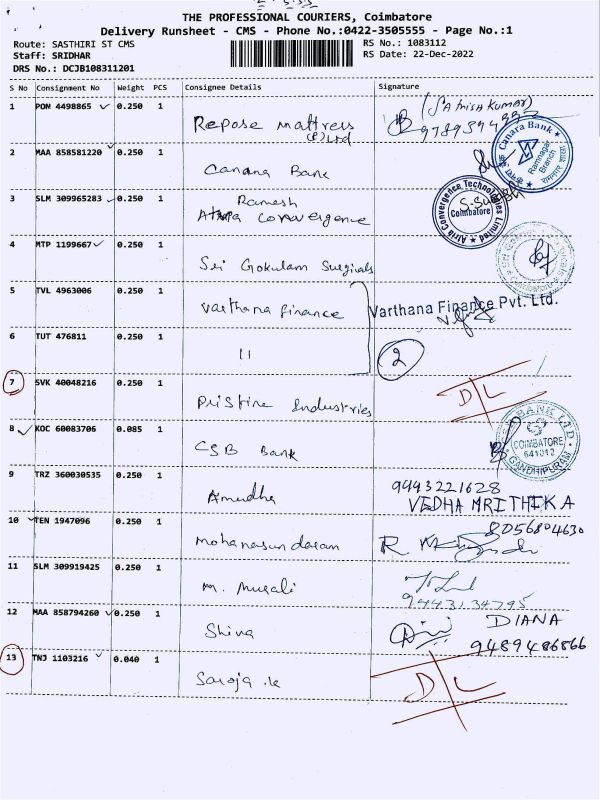 THE PROFESSIONAL COURIERS, Coimbatore
Delivery Runsheet - CMS - Phone No.:0422-3505555 - Page No.:1
Route: SASTHIRI ST CMS
RS No.: 1083112
Staff: SRIDHAR
RS Date: 22-Dec-2022
DRS No.: DCJB108311201
S No Consignment No Weight PCS Consignee Details Signature
1 PON 4498865 0.250 1 Repose Mattress (P) Ltd (Sathish Kumar)
2 MAA 858581220 0.250 1 Canara Bank
Canara Bank Ramnagar Branch
3 SLM 309965283 0.250 1 Ramesh
Atria Convergence
Atria Convergence Technologies Limited Coimbatore
4 MTP 1199667 0.250 1 Sri Gokulam Surgicals
5 TVL 4963006 0.250 1 Varthana Finance Varthana Finance Pvt. Ltd.
6 TUT 476811 0.250 1 11 2
7 SVK 40048216 0.250 1 Pristine Industries D/L
8 KOC 60083706 0.085 1 CSB Bank
BANK LTD COIMBATORE 641012 GANDHIPURAM
9 TRZ 360030535 0.250 1 Amudha 9993221628
VEDHA MRITHIKA
10 TEN 1947096 0.250 1 Mohanasundaram 8056804630
11 SLM 309919425 0.250 1 M. Murali
94431 34795
12 MAA 858794260 0.250 1 Shiva DIANA
9489486866
13 TNJ 1103216 0.040 1 Saroja .k D/L